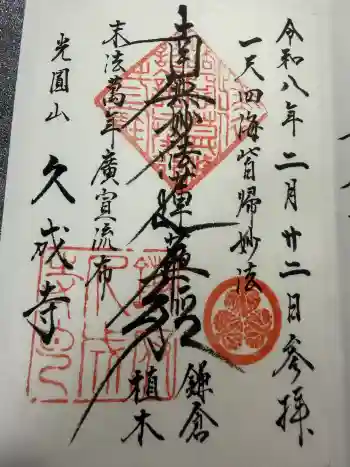 令和八年二月廿二日参拝
一天四海皆帰妙法
鎌倉
植木
南無妙法蓮華経
末法萬年廣宣流布
光圓山
久成寺